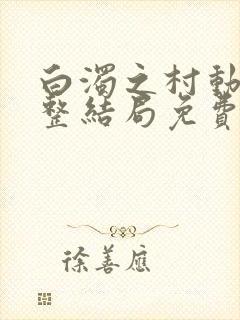 白濁之村動
整結局免費
徐善應